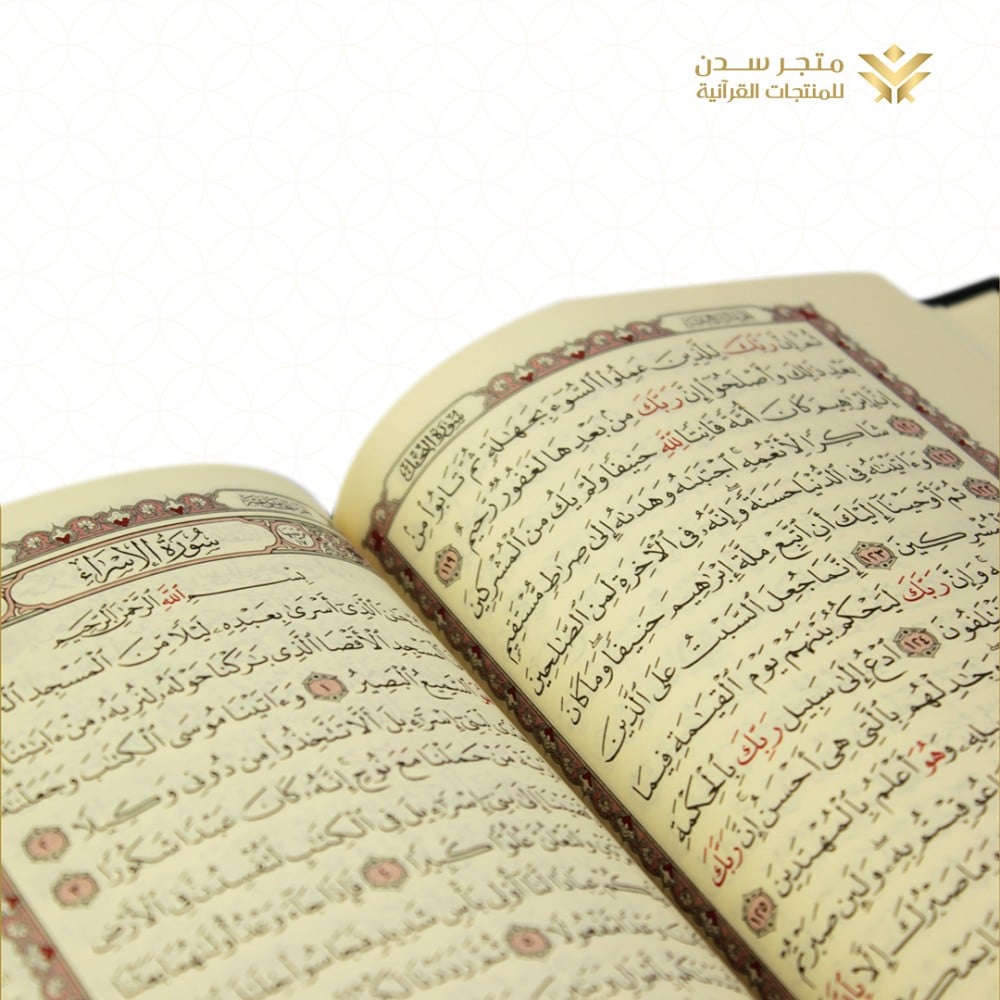 متجر سدن
للمنتجات القرآنية
سُورَةُ النَّحْل
ثُمَّ إِنَّ رَبَّكَ لِلَّذِينَ عَمِلُوا۟ ٱلسُّوٓءَ بِجَهَـٰلَةٍ ثُمَّ تَابُوا۟ مِنۢ
بَعْدِ ذَٰلِكَ وَأَصْلَحُوٓا۟ إِنَّ رَبَّكَ مِنۢ بَعْدِهَا لَغَفُورٌ رَّحِيمٌ ١١٩
إِنَّ إِبْرَٰهِيمَ كَانَ أُمَّةً قَانِتًا لِّلَّهِ حَنِيفًا وَلَمْ يَكُ مِنَ ٱلْمُشْرِكِينَ
١٢٠ شَاكِرًا لِّأَنْعُمِهِ ٱجْتَبَىٰهُ وَهَدَىٰهُ إِلَىٰ صِرَٰطٍ مُّسْتَقِيمٍ
١٢١ وَءَاتَيْنَـٰهُ فِى ٱلدُّنْيَا حَسَنَةً وَإِنَّهُۥ فِى ٱلْـَٔاخِرَةِ لَمِنَ ٱلصَّـٰلِحِينَ
١٢٢ ثُمَّ أَوْحَيْنَآ إِلَيْكَ أَنِ ٱتَّبِعْ مِلَّةَ إِبْرَٰهِيمَ حَنِيفًا وَمَا كَانَ
ٱلْمُشْرِكِينَ ١٢٣ إِنَّمَا جُعِلَ ٱلسَّبْتُ عَلَى ٱلَّذِينَ
وَإِنَّ رَبَّكَ لَيَحْكُمُ بَيْنَهُمْ يَوْمَ ٱلْقِيَـٰمَةِ فِيمَا
يَخْتَلِفُونَ ١٢٤ ٱدْعُ إِلَىٰ سَبِيلِ رَبِّكَ بِٱلْحِكْمَةِ
وَجَـٰدِلْهُم بِٱلَّتِى هِىَ أَحْسَنُ إِنَّ رَبَّكَ
وَهُوَ أَعْلَمُ بِٱلْمُهْتَدِينَ ١٢٥
عُوقِبْتُم بِهِۦ وَلَئِن صَبَرْتُمْ
وَمَا صَبْرُكَ إِلَّا بِٱللَّهِ
سُورَةُ الإِسْرَاءِ
بِسْمِ ٱللَّهِ ٱلرَّحْمَـٰنِ ٱلرَّحِيمِ
ٱلَّذِىٓ أَسْرَىٰ بِعَبْدِهِۦ لَيْلًا مِّنَ ٱلْمَسْجِدِ
ٱلْمَسْجِدِ ٱلْأَقْصَا ٱلَّذِى بَـٰرَكْنَا حَوْلَهُۥ لِنُرِيَهُۥ مِنْ ءَايَـٰتِنَآ
ٱلسَّمِيعُ ٱلْبَصِيرُ ١ وَءَاتَيْنَا مُوسَى ٱلْكِتَـٰبَ وَجَعَلْنَـٰهُ
لِّبَنِىٓ إِسْرَٰٓءِيلَ أَلَّا تَتَّخِذُوا۟ مِن دُونِى وَكِيلًا ٢
مَنْ حَمَلْنَا مَعَ نُوحٍ إِنَّهُۥ كَانَ عَبْدًا شَكُورًا ٣
إِلَىٰ بَنِىٓ إِسْرَٰٓءِيلَ فِى ٱلْكِتَـٰبِ لَتُفْسِدُنَّ فِى ٱلْأَرْضِ
وَلَتَعْلُنَّ عُلُوًّا كَبِيرًا ٤ فَإِذَا جَآءَ وَعْدُ أُولَىٰهُمَا بَعَثْنَا
عِبَادًا لَّنَآ أُو۟لِى بَأْسٍ شَدِيدٍ فَجَاسُوا۟ خِلَـٰلَ
وَعْدًا مَّفْعُولًا ٥ ثُمَّ رَدَدْنَا لَكُمُ